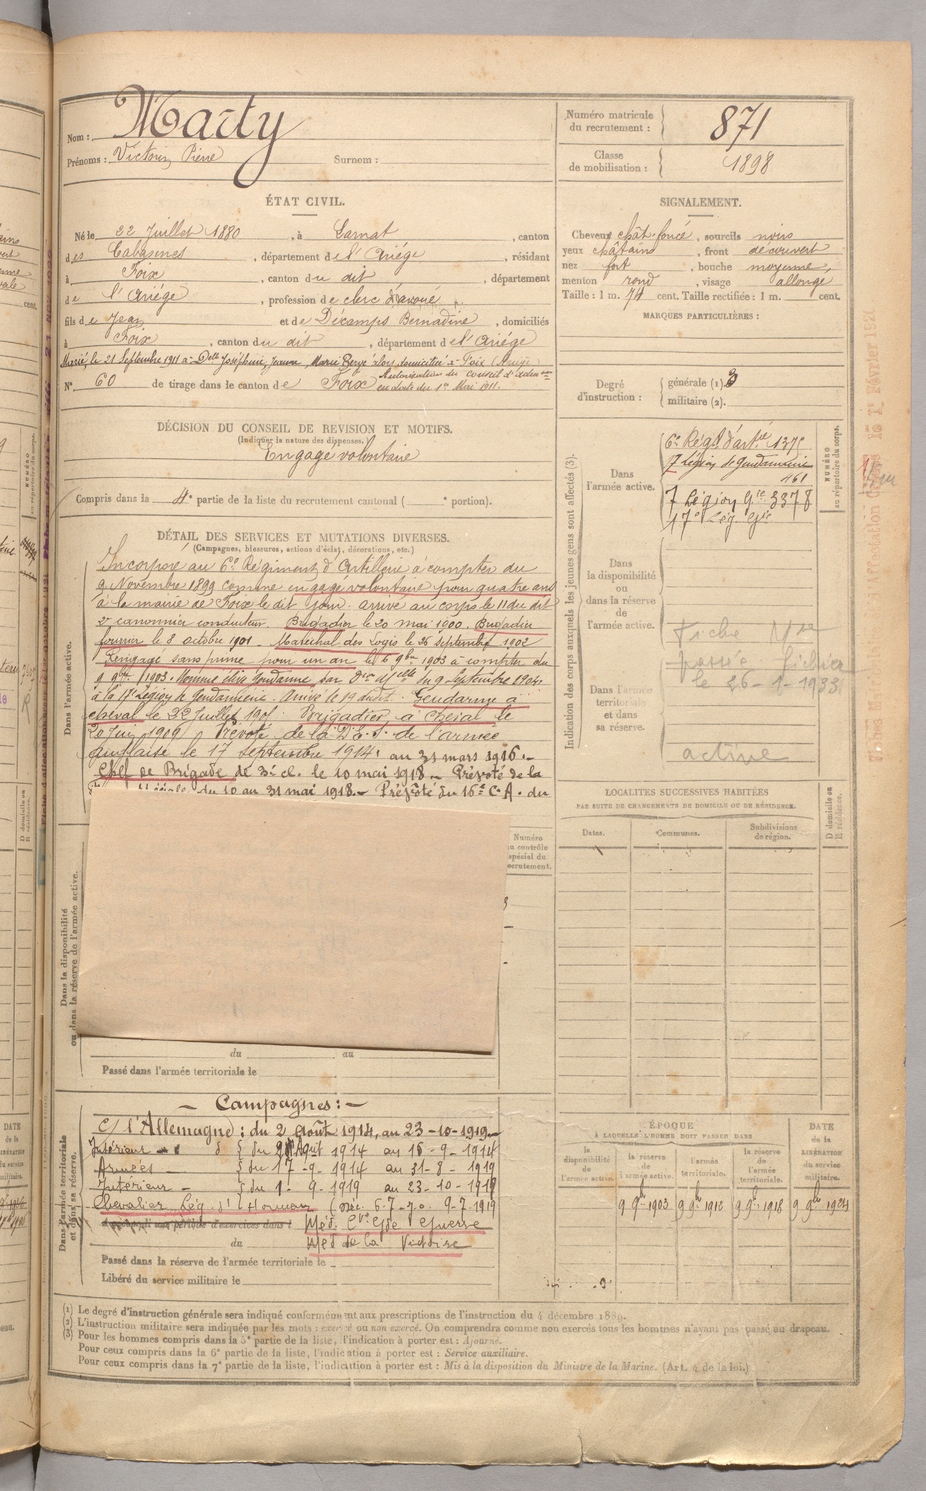 Nom : Marty
Prénoms : Victorin Pierre Surnom :
Numéro matricule du recrutement : 871
Classe de mobilisation : 1898
ÉTAT CIVIL.
Né le 22 Juillet 1880, à Larnat, canton
des Cabannes, département de l'Ariége, résidant
à Foix, canton du dit, département
de l'Ariége, profession de clerc d'avoué
fils de Jean et de Décamps Bernadine, domiciliés
à Foix, canton du dit, département de l'Ariége
Marié, le 21 Septembre 1911 à Delle Joséphine, Jeanne, Marie domiciliée à Foix (Ariège)
Autorisation du Conseil d'
N° 60 de tirage dans le canton de Foix en date du 1er Mai 1911.
SIGNALEMENT.
Cheveux chât foncé, sourcils noirs
yeux châtains, front découvert
nez fort, bouche moyenne,
menton rond, visage allongé
Taille : 1 m. 74 cent. Taille rectifiée : 1 m. cent.
MARQUES PARTICULIÈRES :
Degré d'instruction : générale (1). 3
militaire (2).
DÉCISION DU CONSEIL DE REVISION ET MOTIFS.
(Indiquer la nature des dispenses.)
Engagé volontaire
Compris dans la 4e partie de la liste du recrutement cantonal ( e portion).
DÉTAIL DES SERVICES ET MUTATIONS DIVERSES.
(Campagnes, blessures, actions d'éclat, décorations, etc.)
Dans l'armée active.
Incorporé au 6e Régiment d'Artillerie à compter du
9 Novembre 1899 comme engagé volontaire pour quatre ans
à la mairie de Foix le dit jour. arrivé au corps le 11 du dit
2e canonnier conducteur. Brigadier le 20 mai 1900. Brigadier
fourrier le 8 octobre 1901. Maréchal des Logis le 26 septembre 1902
Rengagé sans prime pour un an le 6 9bre 1903 à compter du
9 9bre 1903. Nommé élève Gendarme par du 9 Septembre 1904
à la 17e Légion de Gendarmerie. Arrivé le 19 dudit. Gendarme à
cheval le 22 Juillet 1905. Brigadier à cheval le
20 Juin 1919 Prévôté de la D.E.S. de l'armée
anglaise le 17 septembre 1914 au 31 mars 1916.-
Chef de Brigade de 3e cl. le 10 mai 1918 - Prévôté de la
du 10 au 31 mai 1918 - Prévôté du 16e C.A. du
Indication des corps auxquels les jeunes gens sont affectés (3).
NUMÉRO au répertoire du corps.
Dans l'armée active.
6e Régt d'artie 1375
17 légion de Gendarmerie
461
7 Légion Gie 3378
17e Lég Gie
Dans la disponibilité ou dans la réserve de l'armée active.
Fiche
passée fichier
le 26-1-1933
Dans l'armée territoriale et dans sa réserve.
active
LOCALITÉS SUCCESSIVES HABITÉES
PAR SUITE DE CHANGEMENTS DE DOMICILE OU DE RÉSIDENCE.
Dates. Communes. Subdivisions de région. D domicile ou R résidence.
Numéro au contrôle spécial du recrutement.
Dans la disponibilité ou dans la réserve de l'armée active.
du au
Passé dans l'armée territoriale le
Dans l'armée territoriale et dans sa réserve.
- Campagnes : -
C/ l'Allemagne : du 2 Août 1914, au 23-10-1919
Intérieur du 2 Août 1914 au 16-9-1914
Armées du 17-9-1914 au 31-8-1919
Intérieur - du 1-9-1919 au 23-10-1919
Chevalier Lég. d'Honneur
Méd. Cve Gde Guerre
du Méd de la Victoire
Passé dans la réserve de l'armée territoriale le
Libéré du service militaire le
ÉPOQUE
À LAQUELLE L'HOMME DOIT PASSER DANS
la disponibilité de l'armée active. la réserve de l'armée active. l'armée territoriale. la réserve de l'armée territoriale.
DATE de la LIBÉRATION du service militaire.
9 9bre 1903 9 9bre 1912 9 9bre 1918 9 9bre 1924
(1) Le degré d'instruction générale sera indiqué conformément aux prescriptions de l'instruction du 4 décembre 1889.
(2) L'instruction militaire sera indiquée par les mots : exercé ou non exercé. On comprendra comme non exercés tous les hommes n'ayant pas passé au drapeau.
(3) Pour les hommes compris dans la 5e partie de la liste, l'indication à porter est : Ajourné.
Pour ceux compris dans la 6e partie de la liste, l'indication à porter est : Service auxiliaire.
Pour ceux compris dans la 7e partie de la liste, l'indication à porter est : Mis à la disposition du Ministre de la Marine. (Art. 4 de la loi.)